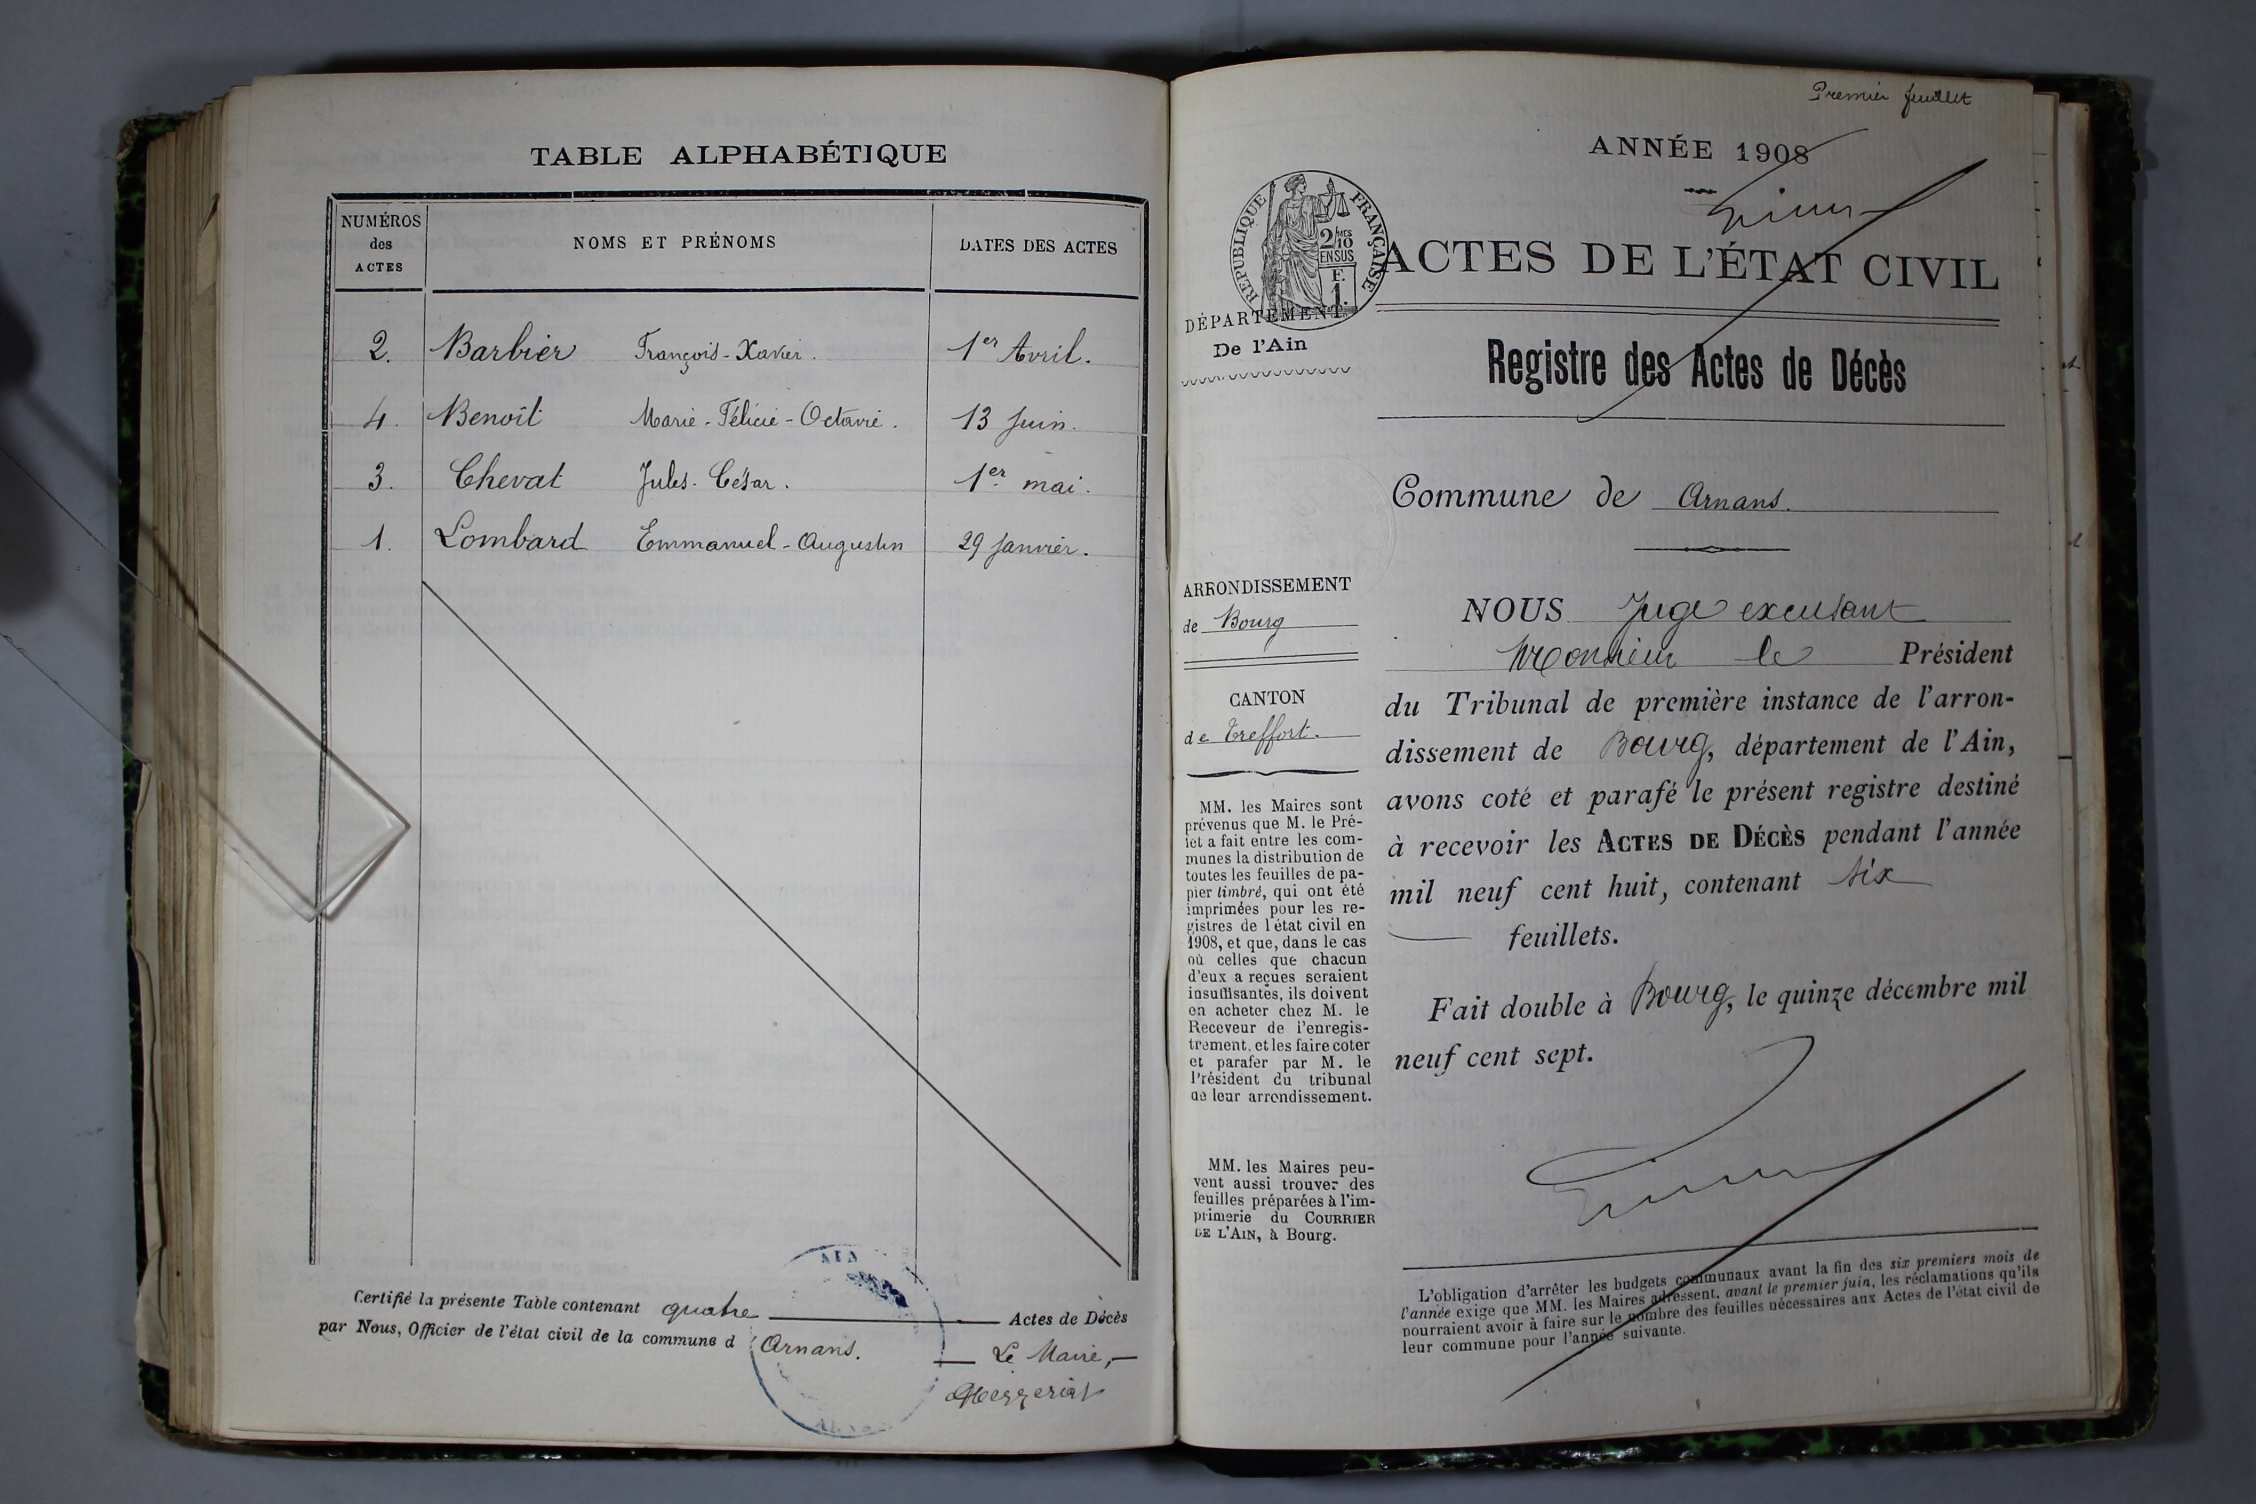 TABLE ALPHABÉTIQUE
NUMÉROS des ACTES
NOMS ET PRÉNOMS
DATES DES ACTES
2. Barbier François-Xavier. 1er Avril.
4. Benoît Marie-Félicie-Octavie. 13 Juin.
3. Chevat Jules-César. 1er mai.
1. Lombard Emmanuel-Augustin 29 Janvier.
Certifié la présente Table contenant quatre Actes de Décès
par Nous, Officier de l'état civil de la commune d Arnans.
Le Maire,
AIN
Premier feuillet
ANNÉE 1908
RÉPUBLIQUE FRANÇAISE
2/10 EN SUS
F.
1.
ACTES DE L'ÉTAT CIVIL
DÉPARTEMENT
De l'Ain
Registre des Actes de Décès
Commune de Arnans.
ARRONDISSEMENT
de Bourg
CANTON
de Treffort.
MM. les Maires sont
prévenus que M. le Pré-
fet a fait entre les com-
munes la distribution de
toutes les feuilles de pa-
pier timbré, qui ont été
imprimées pour les re-
gistres de l'état civil en
1908, et que, dans le cas
où celles que chacun
d'eux a reçues seraient
insuffisantes, ils doivent
en acheter chez M. le
Receveur de l'enregis-
trement, et les faire coter
et parafer par M. le
Président du tribunal
de leur arrondissement.
MM. les Maires peu-
vent aussi trouver des
feuilles préparées à l'im-
primerie du COURRIER
DE L'AIN, à Bourg.
NOUS Juge excusant
Monsieur le Président
du Tribunal de première instance de l'arron-
dissement de Bourg, département de l'Ain,
avons coté et parafé le présent registre destiné
à recevoir les ACTES DE DÉCÈS pendant l'année
mil neuf cent huit, contenant six
feuillets.
Fait double à Bourg, le quinze décembre mil
neuf cent sept.
L'obligation d'arrêter les budgets communaux avant la fin des six premiers mois de
l'année exige que MM. les Maires adressent, avant le premier juin, les réclamations qu'ils
pourraient avoir à faire sur le nombre des feuilles nécessaires aux Actes de l'état civil de
leur commune pour l'année suivante.